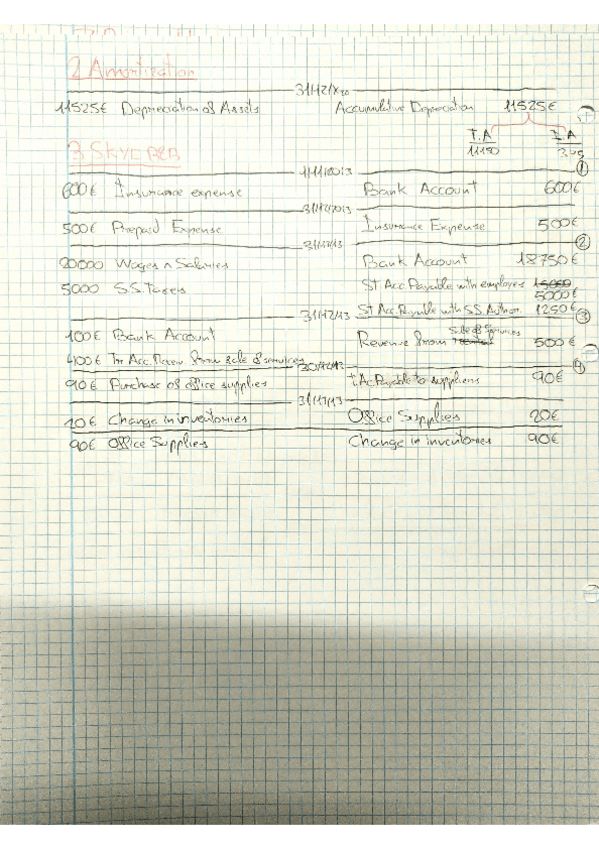 2. Amortization
31/12/x20
11525€ Depreciation of Assets Accumulative Depreciation 11525€
T.A I.A
11150 375
3. SKYCBEB
1/11/2013 ①
600€ Insurance expense Bank Account 600€
31/12/2013
500€ Prepaid Expense Insurance Expense 500€
31/12/13 ②
20000 Wages n Salaries Bank Account 18750€
5000 S.S. Taxes St Acc Payable with employees
5000€
St Acc. Payable with S.S. Author. 1250€
31/12/13 ③
100€ Bank Account Revenue from Sale of Services 500€
400€ Tr Acc. Receiv from sale of services
30/12/13 ④
90€ Purchase of office supplies t Ac. Payable to suppliers 90€
31/12/13
20€ Change in inventories Office Supplies 20€
90€ Office Supplies Change in inventories 90€